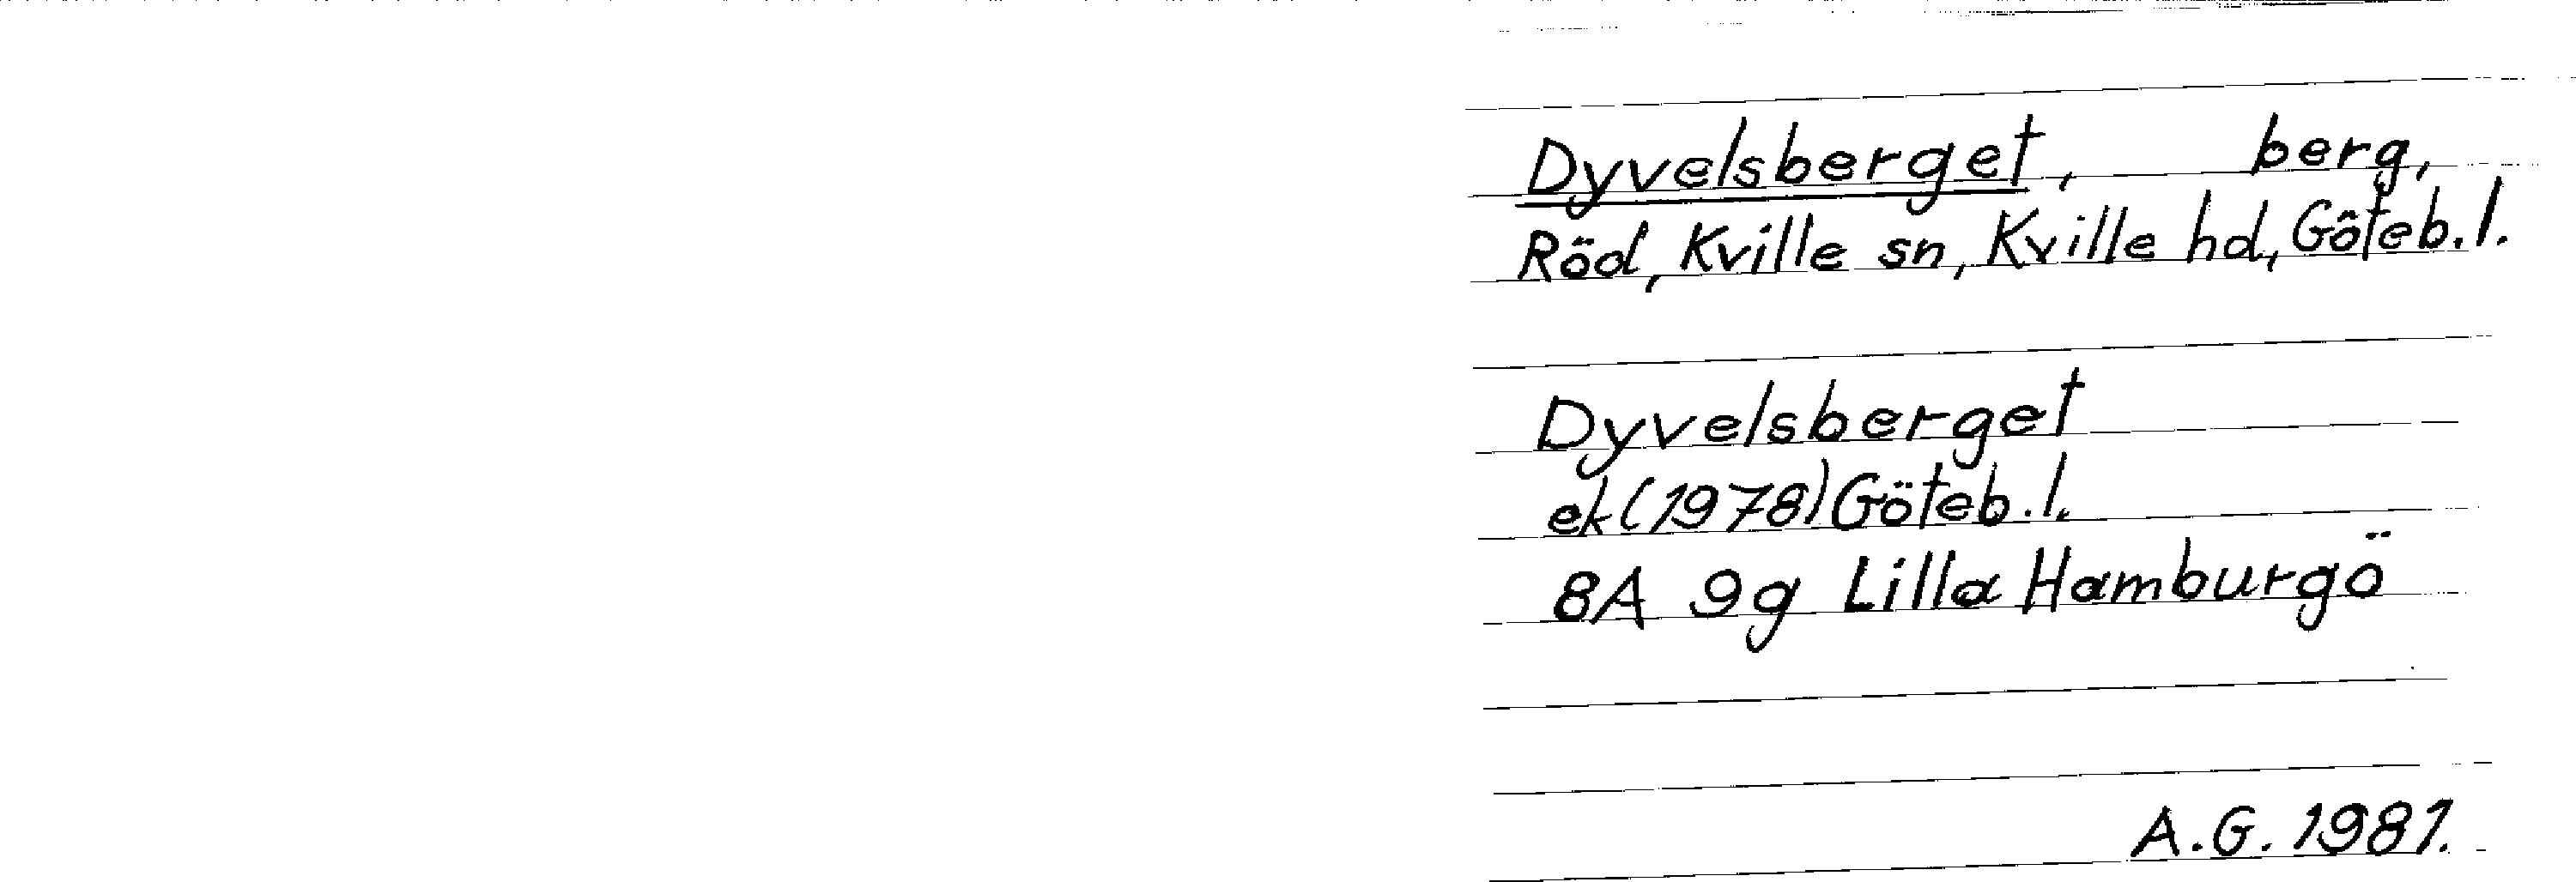 Dyvelsberget, berg,
Röd, Kville sn, Kville hd, Göteb. l.
Dyvelsberget
ek (1978) Göteb. l.
8A 9g Lilla Hamburgö
A.G. 1981.